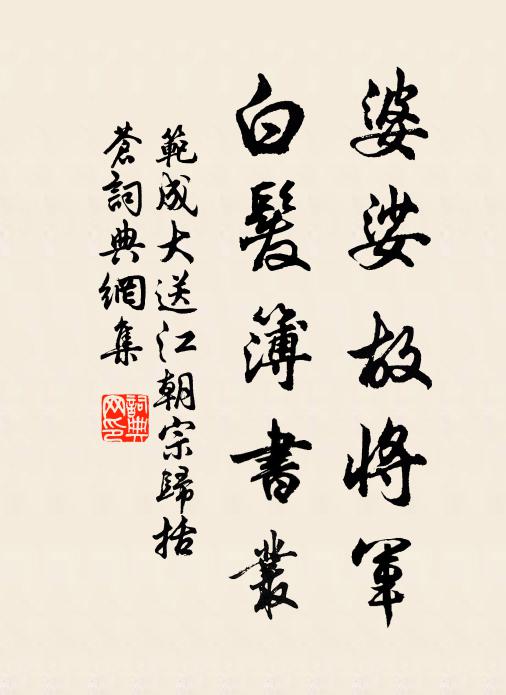 婆娑故將軍
白髮簿書叢
範成大送江朝宗歸括
蒼詞典網集
詞典
网印